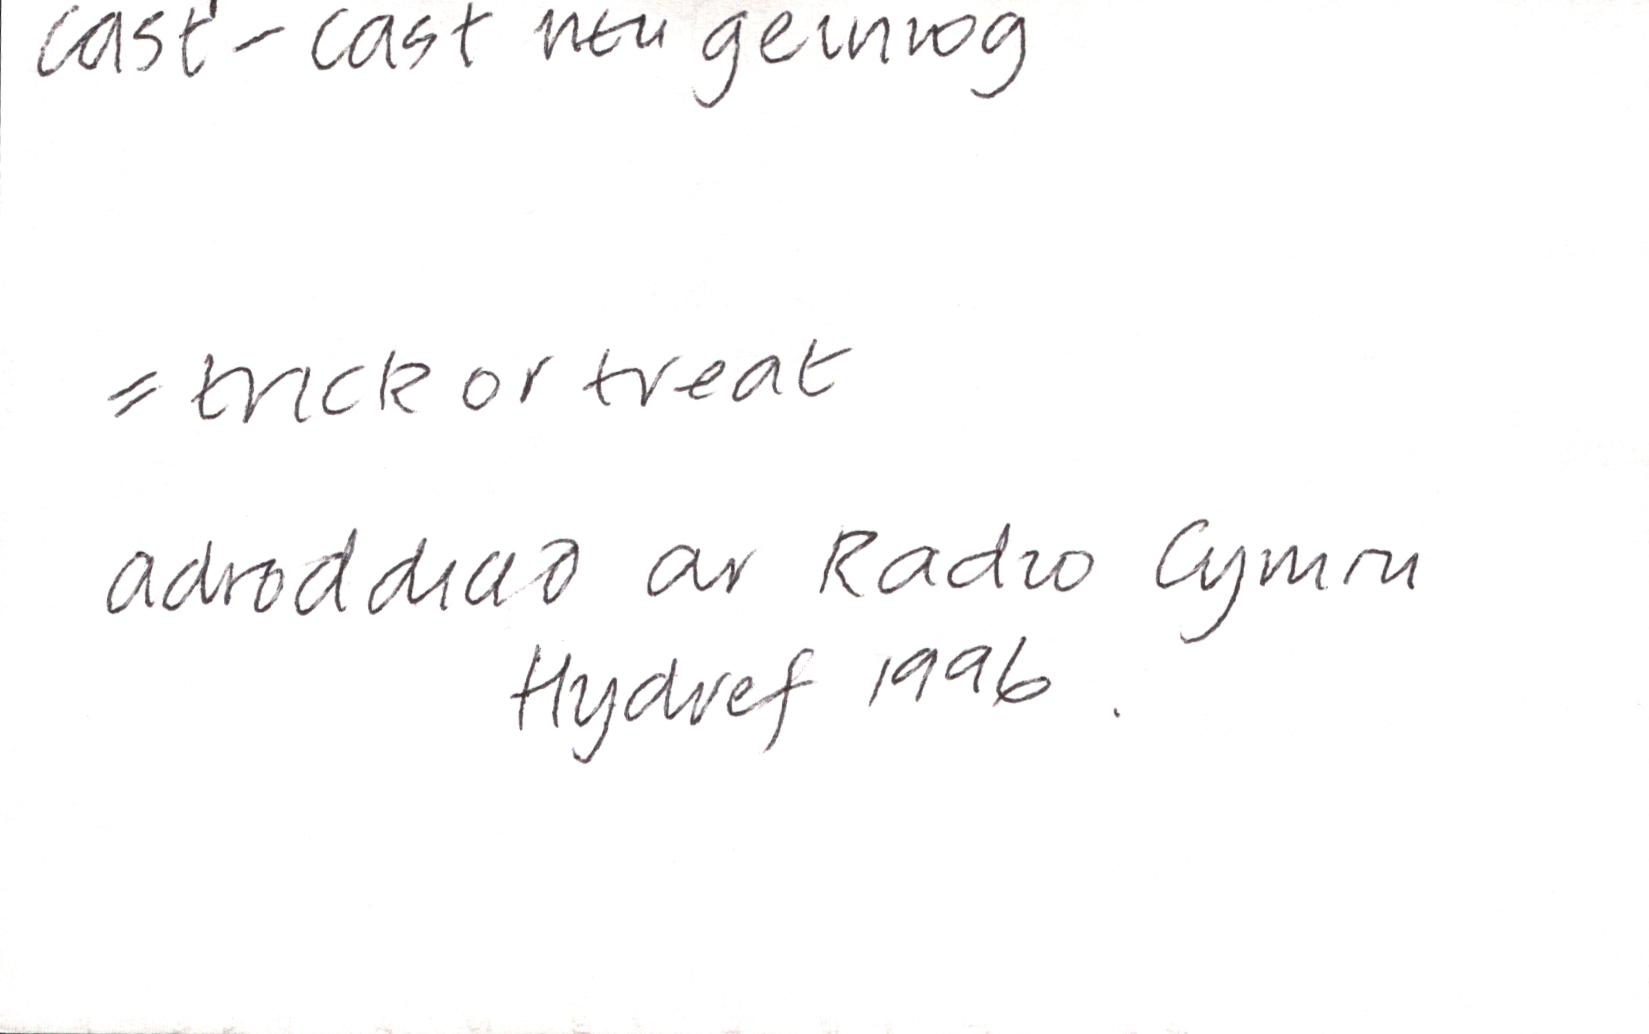 cast - cast neu geiniog
= trick or treat
adroddiad ar Radio Cymru
Hydref 1996.